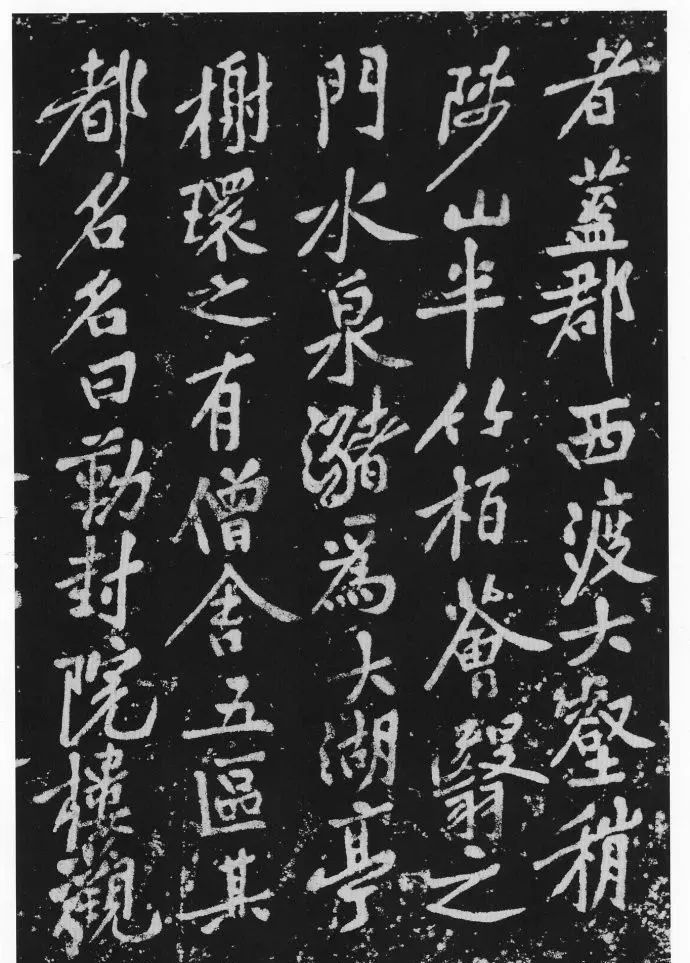 者蓋郡西渡大壑稍
陟山半竹柏薈翳之
門水泉瀦爲大湖亭
榭環之有僧舍五區其
都名名曰勒封院樓觀